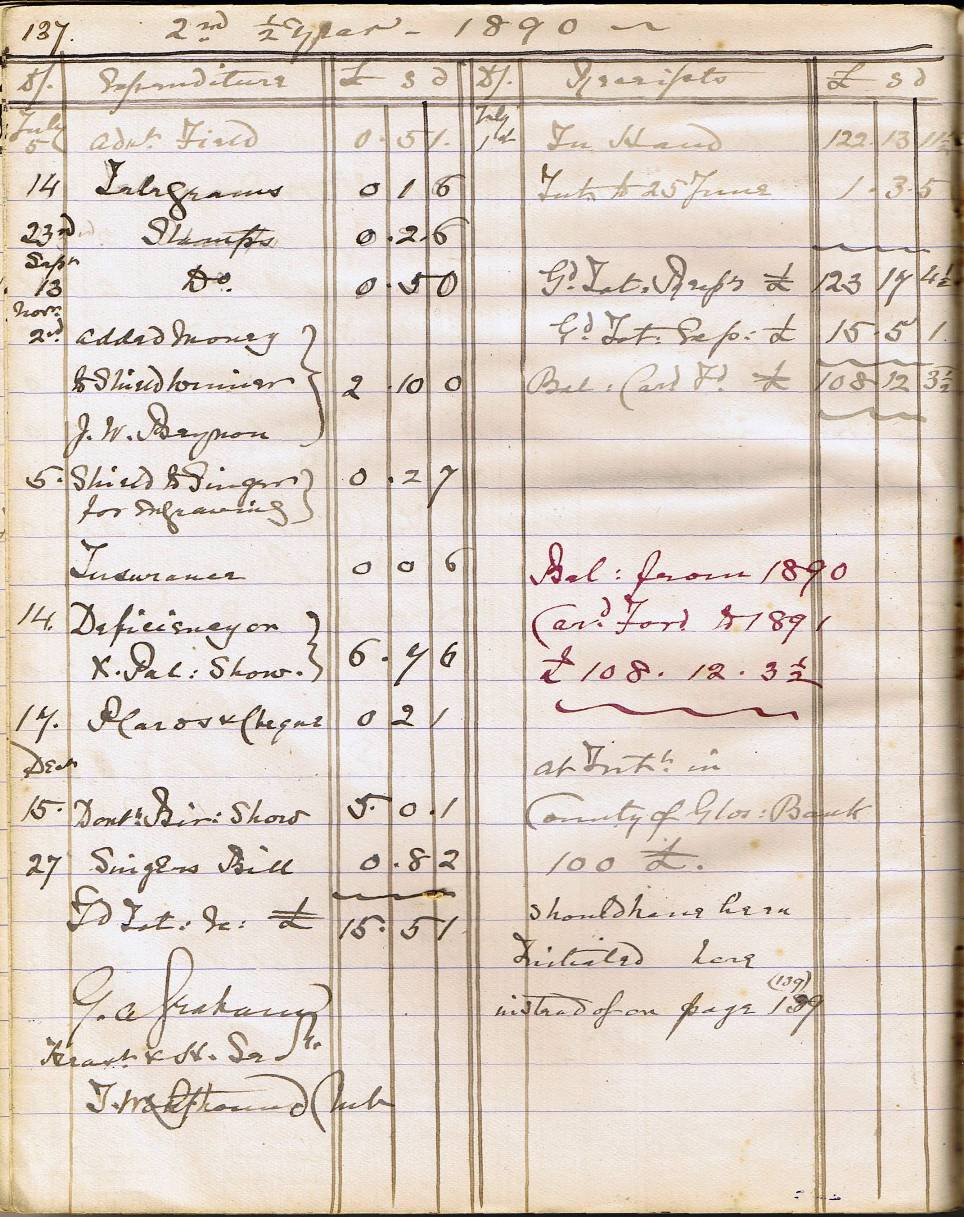 137. 2nd ½ Year - 1890
D/. Expenditure £ s d
July 5 Advt. Field 0 . 5 1.
14 Telegrams 0 1 6
23rd Stamps 0 . 2 . 6
Sept 13 Do. 0 . 5 0
Novr. 2nd added money
to Shield winner 2 . 10 0
J. W. Beynon
5. Shield to Singer 0 . 2 7
for Engraving
Insurance 0 0 6
14. Deficiency on
K. Pal: Show. 6 . 7 6
17. & Cheque 0 2 1
Decr
15. Dont: Bir: Show 5 . 0 . 1
27 Singers Bill 0 . 8 2
Gd Tot: £ 15 . 5 1
G. A. Graham
& H. Sec
Club
D/. Receipts £ s d
July 1st In Hand 122 . 13 11½
Intt. to 25 June 1 . 3 . 5
Gd. Tot. Recpts £ 123 17 4½
Gd Tot: Exp: £ 15 . 5 1.
Bal: Card Fd. £ 108 12 3½
Bal: from 1890
Card. Ford. to 1891
£108. 12. 3½
at Intt. in
County of Glos: Bank
100 £.
should have been
Initiated here
(139)
instead of on page 139